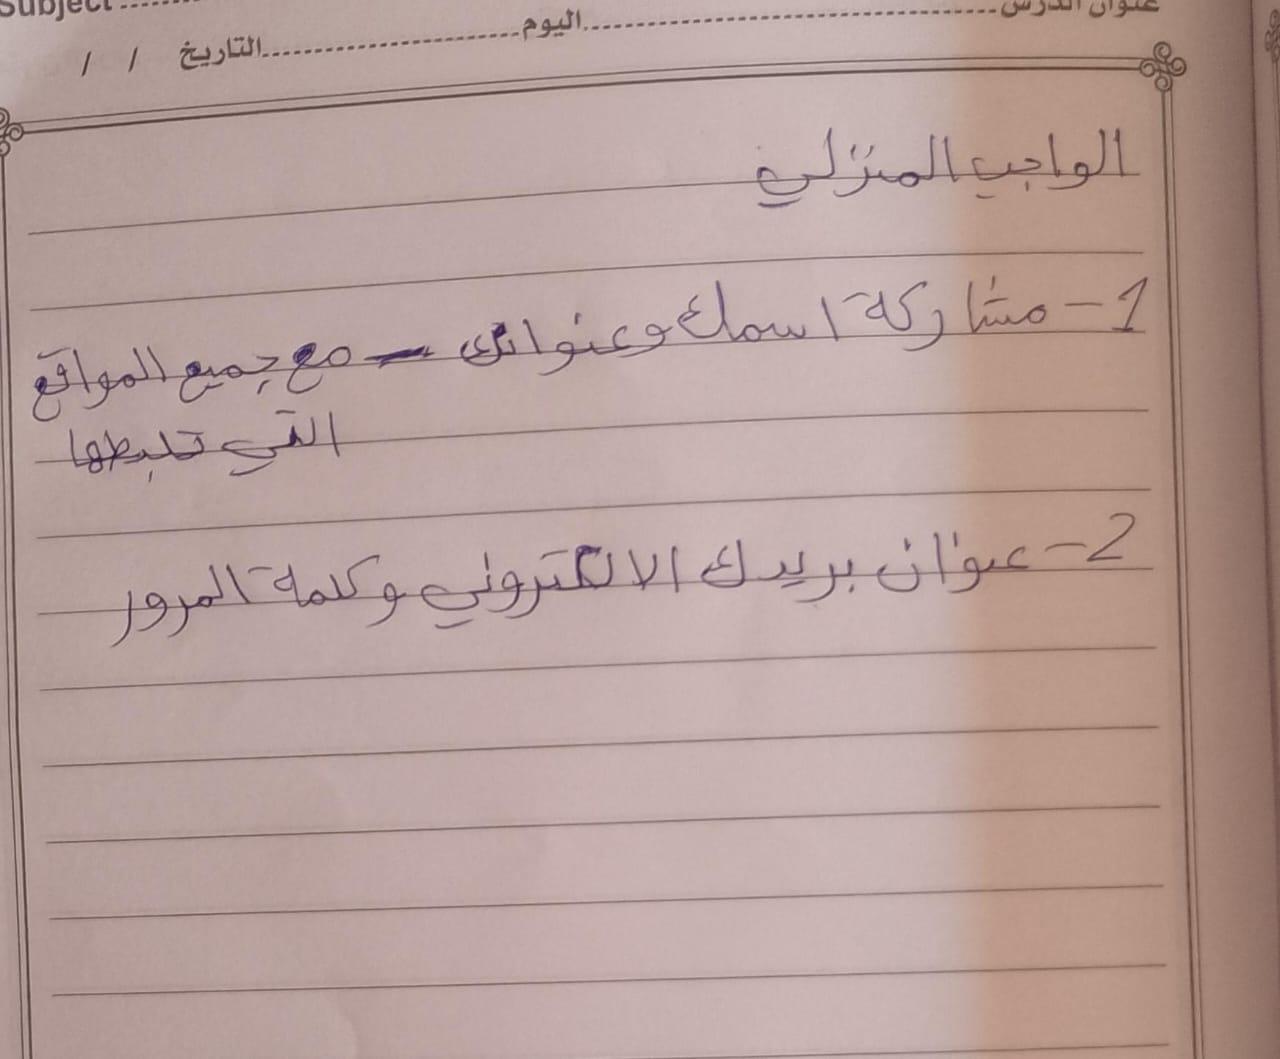 Subject
عنوان الدرس ............ اليوم ............ التاريخ / /
الواجب المنزلي
1- مشاركة اسمك وعنوانك - مع جميع المواقع
التي
2- عنوان بريدك الالكتروني وكلمة المرور